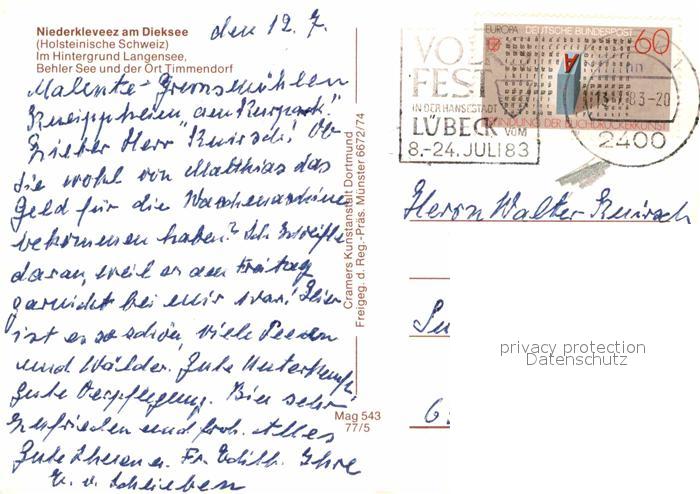 Niederkleveez am Dieksee
(Holsteinische Schweiz)
Im Hintergrund Langensee,
Behler See und der Ort Timmendorf
den 12. 7.
Malente-Gremsmühlen
Kneippheim "am Kurpark"
Lieber Herr Knirsch! Ob
Sie wohl von Matthias das
Geld für die Waschmaschine
bekommen haben? Ich zweifle
daran, weil er am Freitag
garnicht bei mir war! Hier
ist es so schön, viele Seen
und Wälder. Gute Unterkunft,
gute Verpflegung. Bin sehr
zufrieden und froh. Alles
Gute Ihnen u. Fr. Edith. Ihre
v. Schlieben
Cramers Kunstanstalt Dortmund
Freigeg. d. Reg.-Präs. Münster 6672/74
Mag 543
77/5
VOLKSFEST
IN DER HANSESTADT
LÜBECK VOM
8.-24. JULI 83
EUROPA DEUTSCHE BUNDESPOST
60
ERFINDUNG DER BUCHDRUCKERKUNST
13.-7.83-20
2400
Herrn Walter Knirsch
privacy protection
Datenschutz